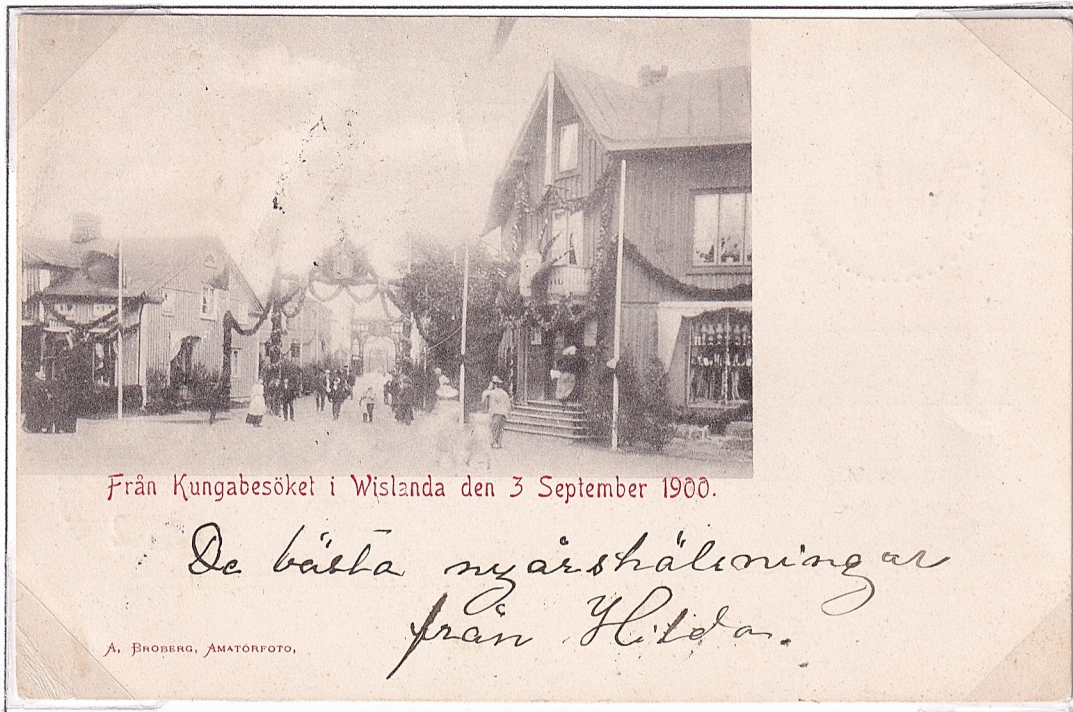 Från Kungabesöket i Wislanda den 3 September 1900.
De bästa nyårshälsningar
från Hilda.
A. BROBERG, AMATÖRFOTO,